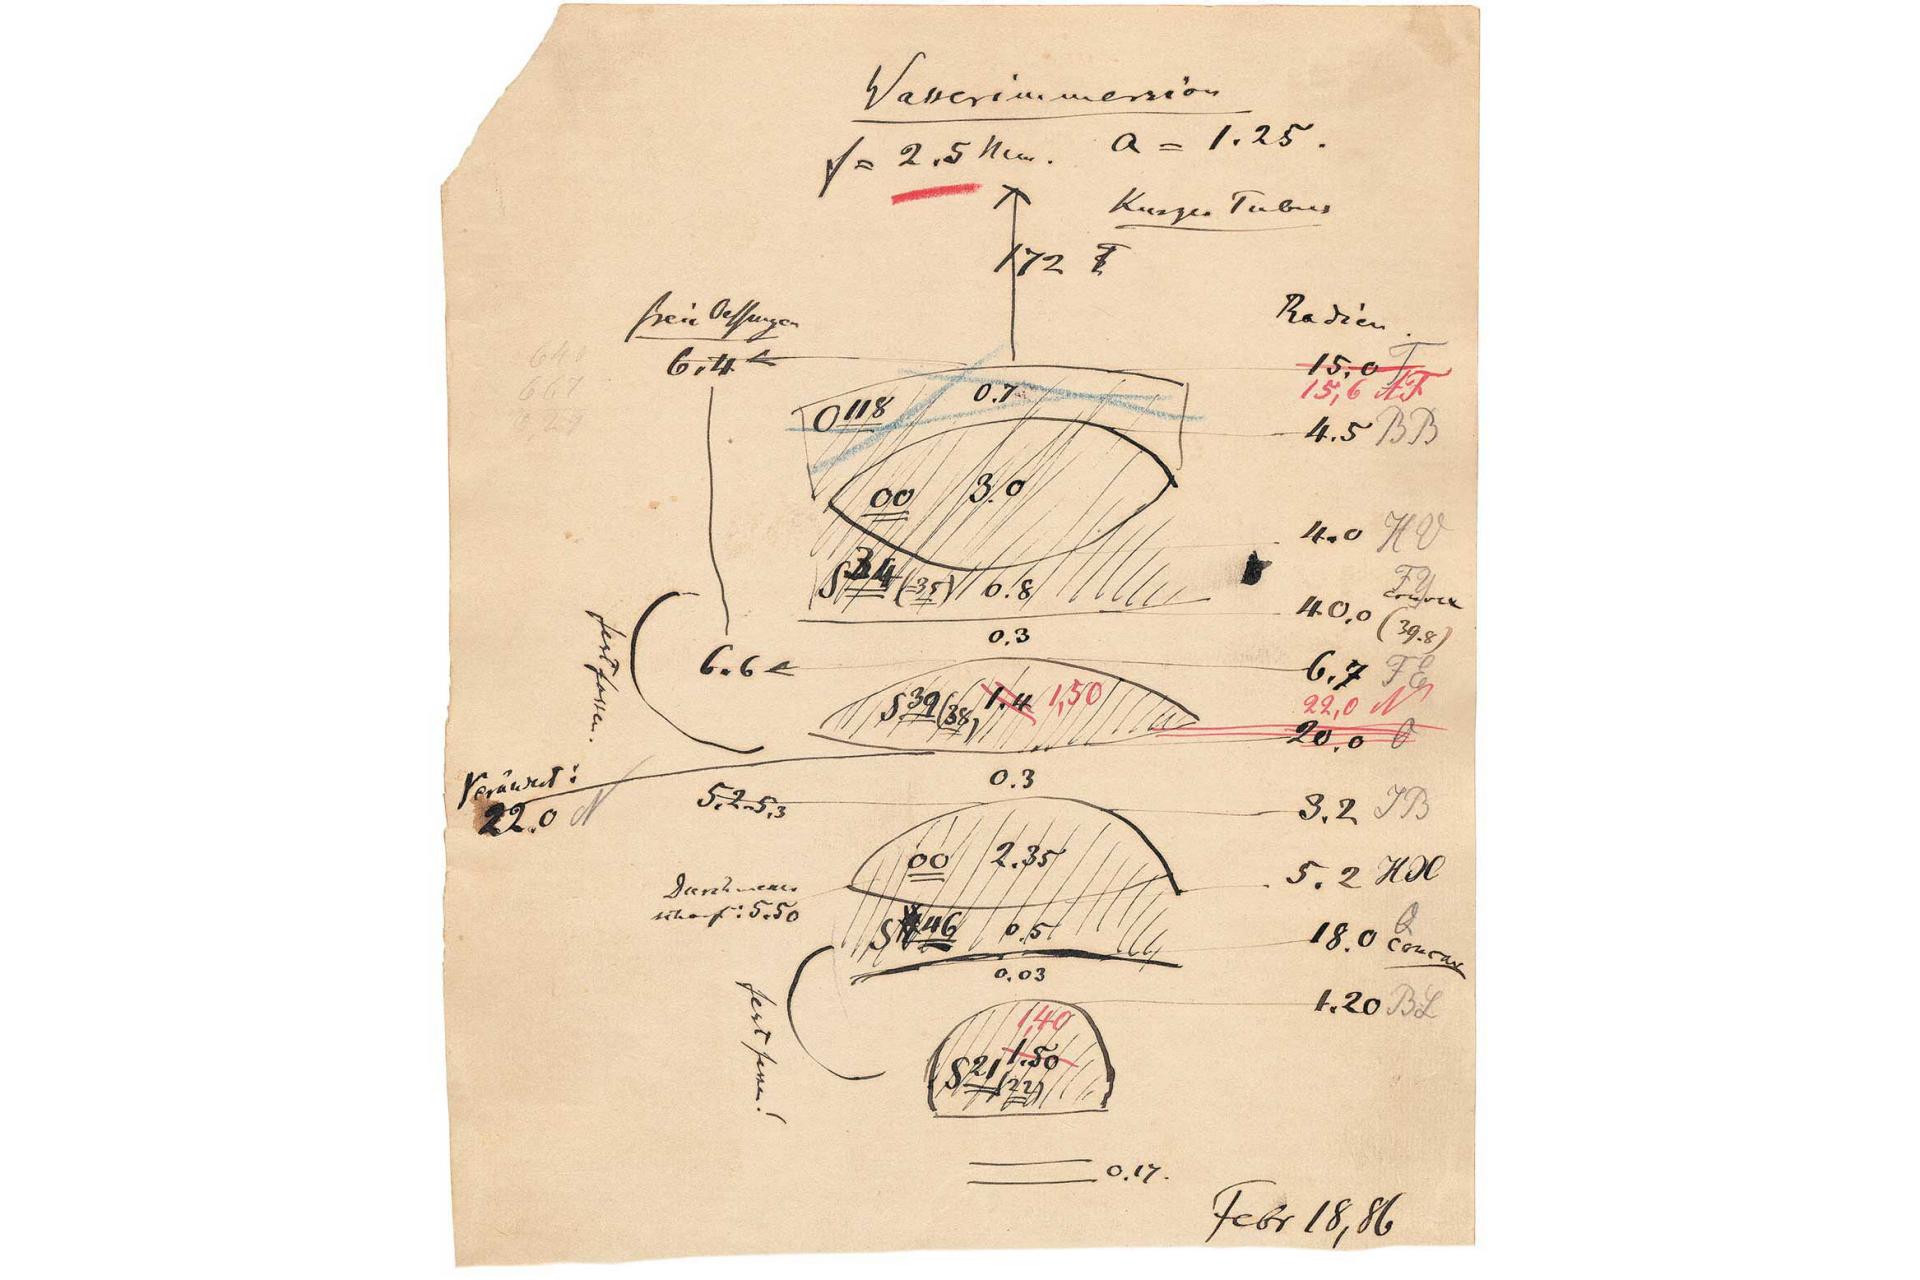 Wasserimmersion
f = 2.5 Mm. a = 1.25.
Kurzer Tubus
172
freie Oeffnungen
Radien.
6.4
15.0 T
15,6 AF
640
667
0,27
O 118
0.7
4.5 BB
00 3.0
4.0 HV
S 34 (35) 0.8
40.0 convex
(39.8)
0.3
6.6
6.7 FE
fest fassen.
S 39 (38) 1.4 1,50
22,0 N
20.0 O
Verändert:
22.0 N
0.3
5.2-5,3
3.2 JB
00 2.35
5.2 HX
Durchmesser
scharf: 5.50
S 46 0.5
18.0 Q
concav
0.03
1.20 BL
fest fassen!
1,40
1.50
S 21 (22)
0.17.
Febr 18, 86